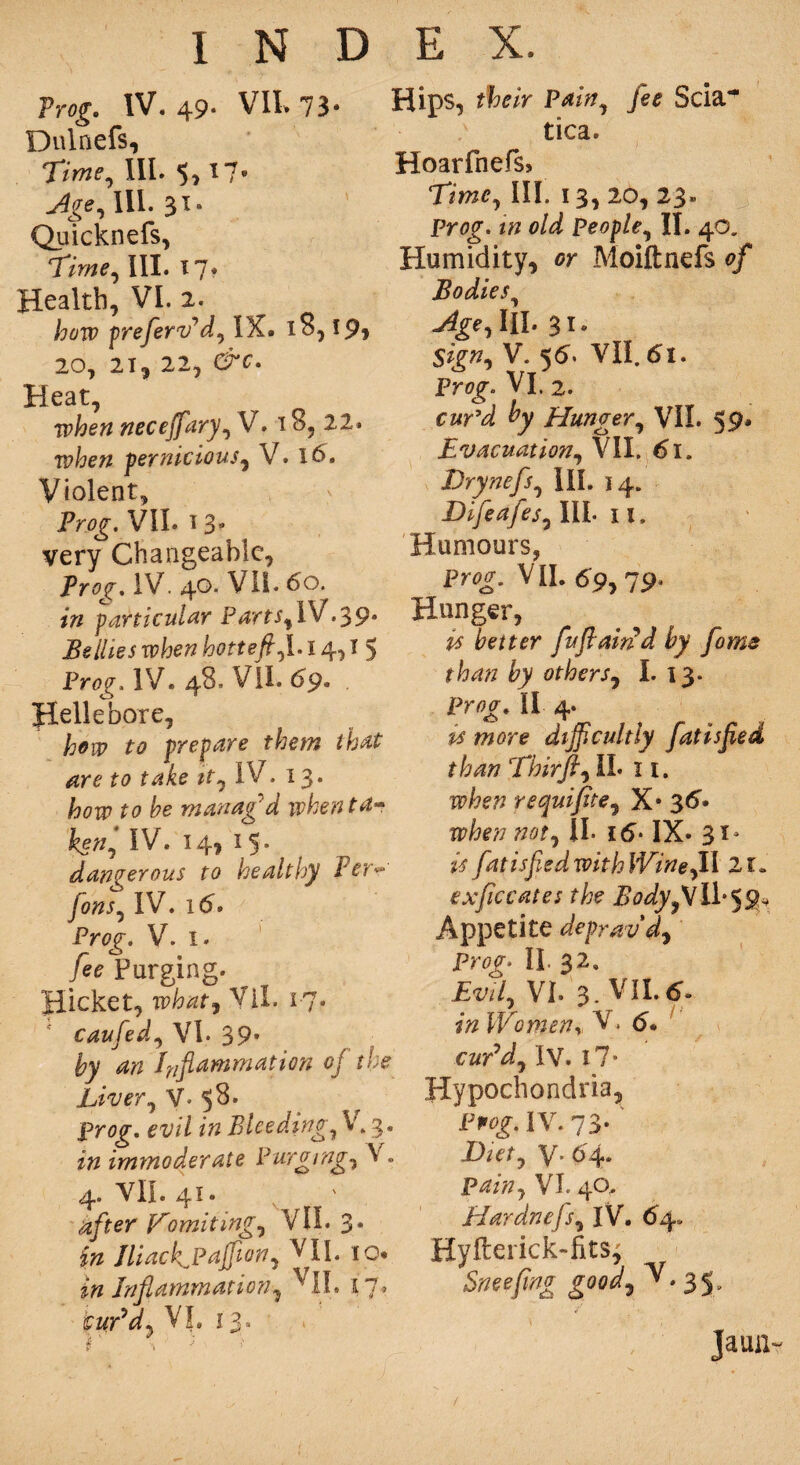 INDEX.
Prog. IV. 49. VII. 73.
Dulneſs,
Time, III. 5, 17.
Age, III. 31.
Quickneſs,
Time, III. 17.
Health, VI. 2.
how preſerv'd, IX. 18, 19,
20, 21, 22, &c.
Heat,
when neceſſary, V. 18, 22.
when pernicious, V. 16.
Violent,
Prog. VII. 13.
very Changeable,
Prog. IV. 40. VII. 60.
in particular Parts, IV. 39.
Bellies when hotteſt, I. 14, 15
Prog. IV. 48. VII. 69.
Hellebore,
how to prepare them that
are to take it, IV. 13.
how to be manag'd when ta-
ken, IV. 14, 15.
dangerous to healthy Per-
ſons, IV. 16.
Prog. V. 1.
ſee Purging.
Hicket, what, VII. 17.
cauſed, VI. 39.
by an Inflammation of the
Liver, V. 58.
prog. evil in Bleeding, V. 3.
in immoderate Purging, V.
4. VII. 41.
after Vomiting, VII. 3.
in Iliack Paſſion, VII. 10.
in Inflammation, VII. 17.
cur'd, VI. 13.
Hips, their Pain, ſee Scia-
tica.
Hoarſneſs,
Time, III. 13, 20, 23.
Prog. in old People, II. 40.
Humidity, or Moiſtneſs of
Bodies,
Age, III. 31.
Sign, V. 56. VII. 61.
Prog. VI. 2.
cur'd by Hunger, VII. 59.
Evacuation, VII. 61.
Dryneſs, III. 14.
Diſeaſes, III. 11.
Humours,
Prog. VII. 69, 79.
Hunger,
is better ſuſtain'd by ſome
than by others, I. 13.
Prog. II 4.
is more difficultly ſatisfied
than Thirſt, II. 11.
when requiſite, X. 36.
when not, II. 16. IX. 31.
is ſatisfied with Wine, II 21.
exſiccates the Body, VII. 59.
Appetite deprav'd,
Prog. II. 32.
Evil, VI. 3. VII. 6.
in Women, V. 6.
cur'd, IV. 17.
Hypochondria,
Prog. IV. 73.
Diet, V. 64.
Pain, VI. 40.
Hardneſs, IV. 64.
Hyſterick-fits,
Sneeſing good, V. 35.
Jaun-